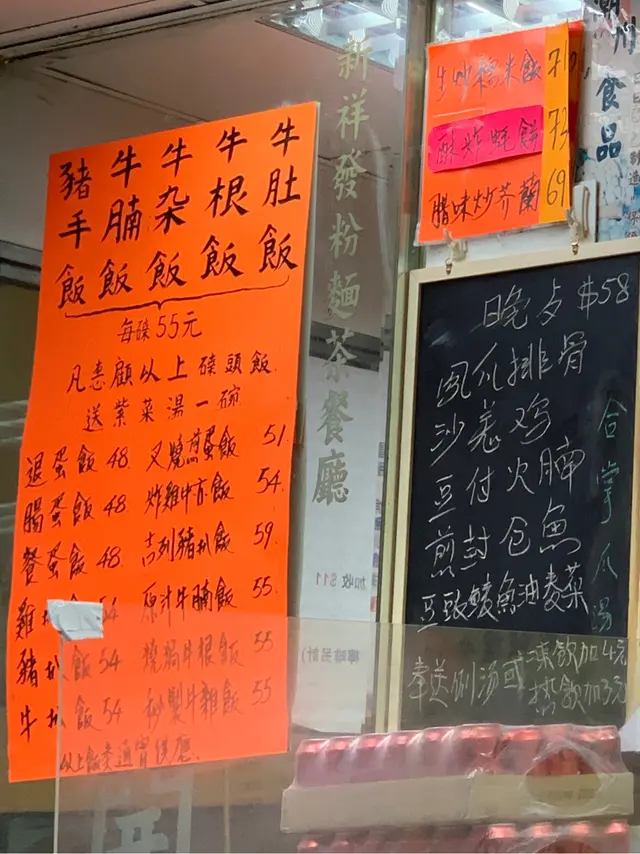 牛肚飯
牛根飯
牛杂飯
牛腩飯
豬手飯
每碟55元
凡惠顧以上碟頭飯
送紫菜湯一碗
退蛋飯 48 叉燒煎蛋飯 51
腸蛋飯 48 炸雞中亦飯 54
餐蛋飯 48 吉列豬扒飯 59
雞扒 54 原汁牛腩飯 55
豬扒飯 54 燒鍋牛根飯 55
牛扒飯 54 秘製牛雜飯 55
以上飯类通宵供應
新祥發粉麵茶餐廳
加收 $11
生炒糯米飯
酥炸蚝餅 73
腊味炒芥蘭 69
潮州食品
晚歺 $58
凤爪排骨
沙姜鸡
豆付火腩
煎封仓魚
豆豉鲮魚油麦菜
合掌瓜湯
奉送例汤或凍飲加4元
热飲加3元